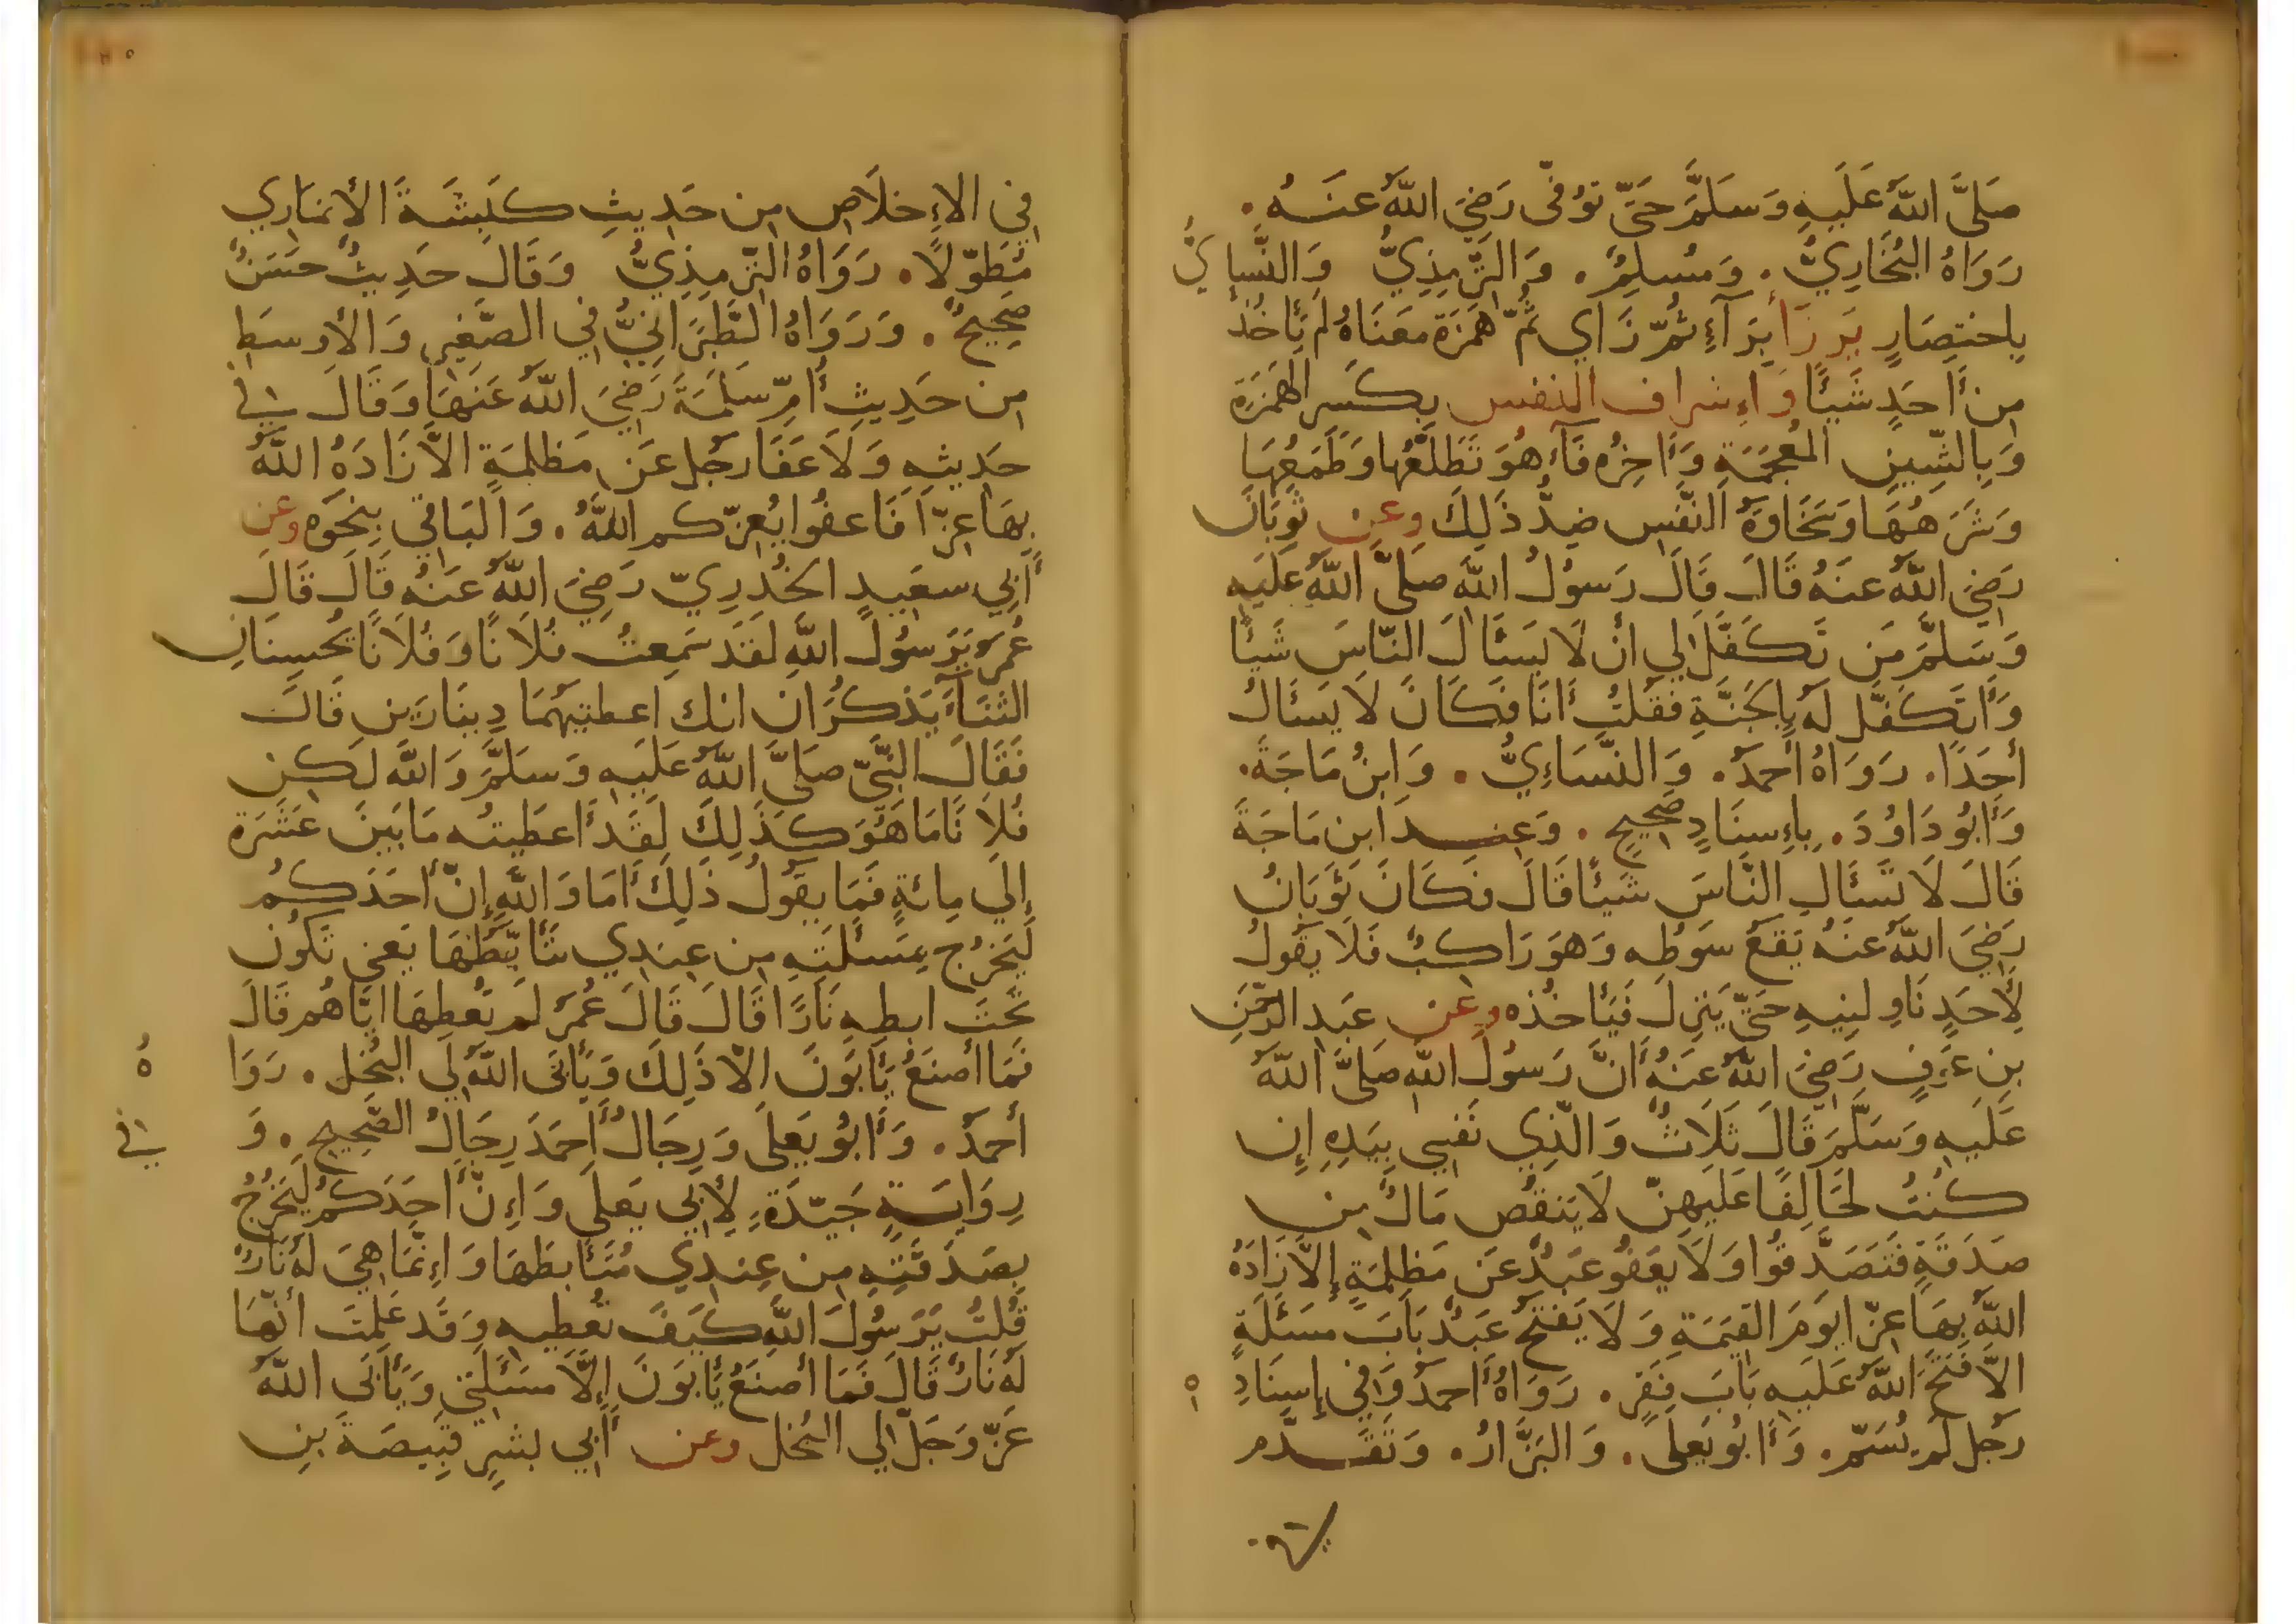 صَلَّى اللَّهُ عَلَيهِ وَسَلَّمَ حَتَّى تُوُفِّى رَضِيَ اللَّهُ عَنهُ.
رَوَاهُ البُخَارِيُّ. وَمُسلِمٌ. وَالتِّرمِذِيُّ وَالنَّسَايُّ
بِاختِصَارٍ يَرزَأ بِرَآءٍ ثُمَّ زَاي ثُمَّ هَمزَة مَعنَاهُ لَم يَأخُذ
مِن أَحَدٍ شَيئًا وَإِشراف النفس بِكَسرِ الهَمزَةِ
وَبِالشِّينِ المُعجَمَةِ وَأَاخِرُه فَآء هُوَ تَطَلُّعُها وَطَمَعُهَا
وَشَرَهُهَا وَسَخَاوَةُ النَّفسِ ضِدُّ ذَلِكَ وعن ثَوبَانَ
رَضِيَ اللَّهُ عَنهُ قَالَ قَالَ رَسُولُ اللَّهِ صَلَّى اللَّهُ عَلَيهِ
وَسَلَّمَ مَن تَكَفَّلَ لِي أَن لَا يَسئَالَ النَّاسَ شَيئًا
وَأَتَكَفَّل لَهُ بِالجَنَّةِ فَقُلتُ أَنَا فَكَانَ لَا يَسئَالُ
أَحَدًا. رَوَاهُ أَحمَدُ. وَالنَّسَاءِيُّ. وَابنُ مَاجَةَ.
وَأَبُو دَاوُدَ. بِإِسنَادٍ صَحِيحٍ. وَعِنــدَ ابنِ مَاجَةَ
قَالَ لَا تَسئَالِ النَّاسَ شَيئًا قَالَ فَكَانَ ثَوبَانُ
رَضِيَ اللَّهُ عَنهُ يَقَعُ سَوطُه وَهوَ رَاكِبٌ فَلَا يَقُولُ
لِأَحَدٍ نَاوِلنِيهِ حَتَّى يَنزِلَ فَيَأخُذه وعن عَبدِ الرَّحمَنِ
بنِ عَوفٍ رَضِيَ اللَّهُ عَنهُ أَنَّ رَسُولَ اللَّهِ صَلَّى اللَّهُ
عَلَيهِ وَسَلَّمَ قَالَ ثَلَاثٌ وَالَّذِي نَفسِي بِيَدِهِ إِن
كُنتُ لَحَالِفًا عَلَيهِنَّ لَا يَنقُص مَالٌ مِن
صَدَقَةٍ فَتَصَدَّقُوا وَلَا يَعفُو عَبدٌ عَن مَظلِمَةٍ إِلَّا زَادَهُ
اللَّهُ بِهَا عِزًّا يَومَ القِيَمَةِ وَلَا يَفتَحُ عَبدٌ بَابَ مَسئَلَةٍ
الَّا فَتَحَ اللَّهُ عَلَيهِ بَابَ فَقرٍ. رَوَاهُ أَحمَدُ وَفِي إِسنَادِه
رَجُل لَم يُسَمّ. وَأَبُو يَعلَى. وَالبَزَّارُ. وَتَقَــدَّم
فِي الإِخلَاصِ مِن حَدِيثِ كَبشَةَ الأَنمَارِي
مُطَوَّلًا. رَوَاهُ التِّرمِذِيُّ وَقَالَ حَدِيثٌ حَسَنٌ
صَحِيحٌ. وَرَوَاهُ الطَّبَرَانِيُّ فِي الصَّغِيرِ وَالأَوسَطِ
مِن حَدِيثِ أُمِّ سَلَمَةَ رَضِيَ اللَّهُ عَنهَا وَقَالَ فِي
حَدِيثِهِ وَلَا عَفَا رَجُل عَن مَظلِمَةٍ الَّا زَادَهُ اللَّهُ
بِهَا عِزًّا فَاعفُوا يُعِزّكم اللَّهُ. وَالبَاقِي بِنَحوِه وعن
أَبِي سَعِيدٍ الخُدرِيّ رَضِيَ اللَّهُ عَنهُ قَالَ قَالَ
عُمَرُ يَرَسُولَ اللَّهِ لَقَد سَمِعتُ فُلَانًا وَفُلَانًا يُحسِنَانِ
الثنَآءَ يَذكُرَانِ انك اعطيتهُمَا دِينَارَينِ قَالَ
فَقَالَ النَّبِيّ صَلَّى اللَّهُ عَلَيهِ وَسَلَّمَ وَاللَّهِ لَكِن
فُلَانًا مَا هُوَ كَذَلِكَ لَقَد أَعطَيتُه مَا بَينَ عَشَرَة
إِلَى مِائَةٍ فَمَا يَقُولُ ذَلِكَ أَمَا وَاللَّهِ إِنَّ أَحَدَكُم
لَيَخرُج بِمَسئَلَتِهِ مِن عِندِي يتَأَبَّطُهَا يَعنِي تَكُونُ
تَحتَ ابطِهِ نَارًا قَالَ قَالَ عُمَرُ لِمَ تُعطِهَا ايَّاهُم قَالَ
فَمَا أَصنَعُ يَأبَونَ الَّا ذَلِكَ وَيَأبَى اللَّهُ لِي البُخل. رَوَاهُ
أَحمَدُ. وَأَبُو يَعلَى وَرِجَالُ أَحمَدَ رِجَالُ الصَّحِيحِ. وَفِي
رِوَايَــةٍ جَيِّدَةٍ لِأَبِي يَعلَى وَإِنَّ أَحَدَكُم لَيَخرُجُ
بِصَدَقَتِهِ مِن عِندِي مُتَأَبطَهَا وَإِنَّمَا هِيَ لَهُ نَارٌ
قُلتُ يَرَسُولَ اللَّهِ كَيفَ تُعطِيهِ وَقَد عَلِمتَ أَنَّهَا
لَهُ نَارٌ قَالَ فَمَا أَصنَعُ يَأبَونَ إِلَّا مَسئَلَتِي وَيَأبَى اللَّهُ
عَزَّ وَجَلَّ لِي البُخل وعن أَبِي بشرٍ قَبِيصَةَ بنِ